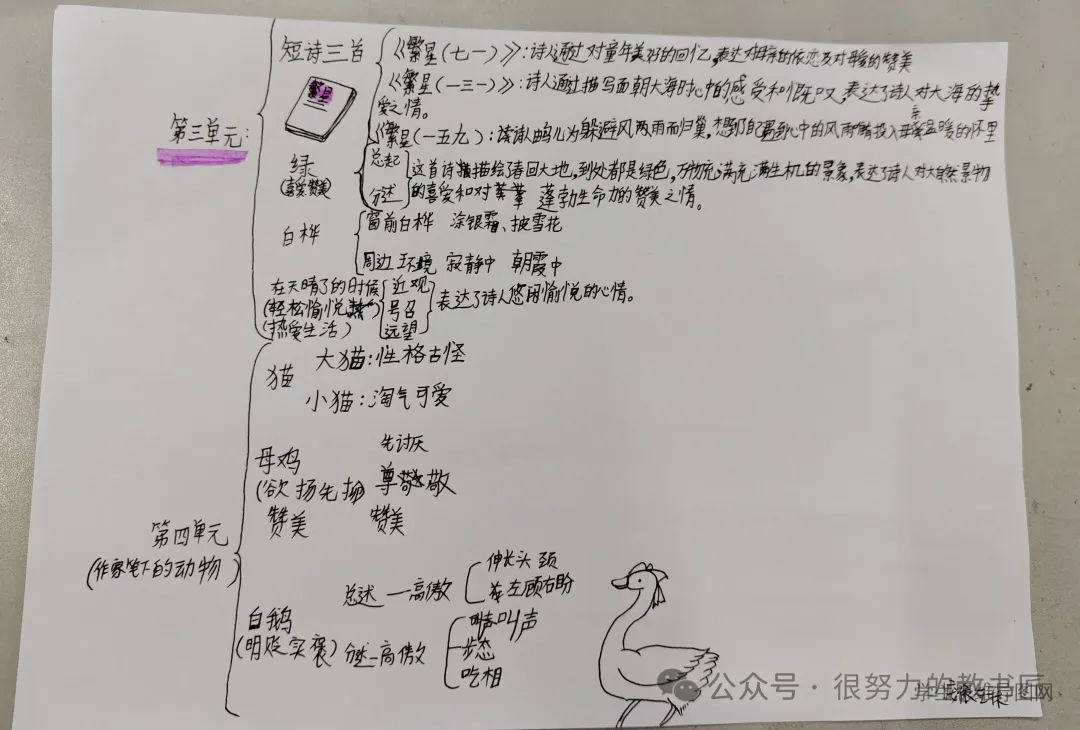 第三单元:
短诗三首
繁星
《繁星(七一)》:诗人通过对童年美好的回忆,表达对母亲的依恋及对母爱的赞美
《繁星(一三一)》:诗人通过描写面朝大海时心中的感受和慨叹,表达了诗人对大海的热
爱之情。
《繁星(一五九):读诗人由鸟儿为躲避风雨而归巢,想到自己遇到心中的风雨投入母亲温暖的怀里
绿
(喜爱赞美)
总起
分述
这首诗描绘了春回大地,到处都是绿色,万物充满生机的景象,表达了诗人对大自然景物
的喜爱和对 蓬勃生命力的赞美之情。
白桦
窗前白桦 涂银霜、披雪花
周边环境 寂静中 朝霞中
在天晴了的时候
(轻松愉悦
(热爱生活)
近观
号召
远望
表达了诗人悠闲愉悦的心情。
第四单元
(作家笔下的动物)
猫
大猫:性格古怪
小猫:淘气可爱
母鸡
(欲扬先抑)
赞美
先讨厌
尊敬
赞美
白鹅
(明贬实褒)
总述一高傲
伸长头颈
左顾右盼
分述一高傲
叫声
步态
吃相
公众号·很努力的教书匠